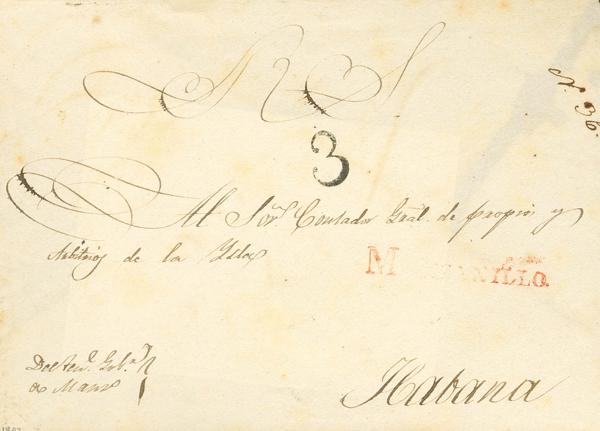 R S
N. 36.
3
Al Sor. Contador Gral. de propios y
Arbitrios de la Ysla
M ANILLO.
Del Ten.e Gob.or
de Manz.o
Habana